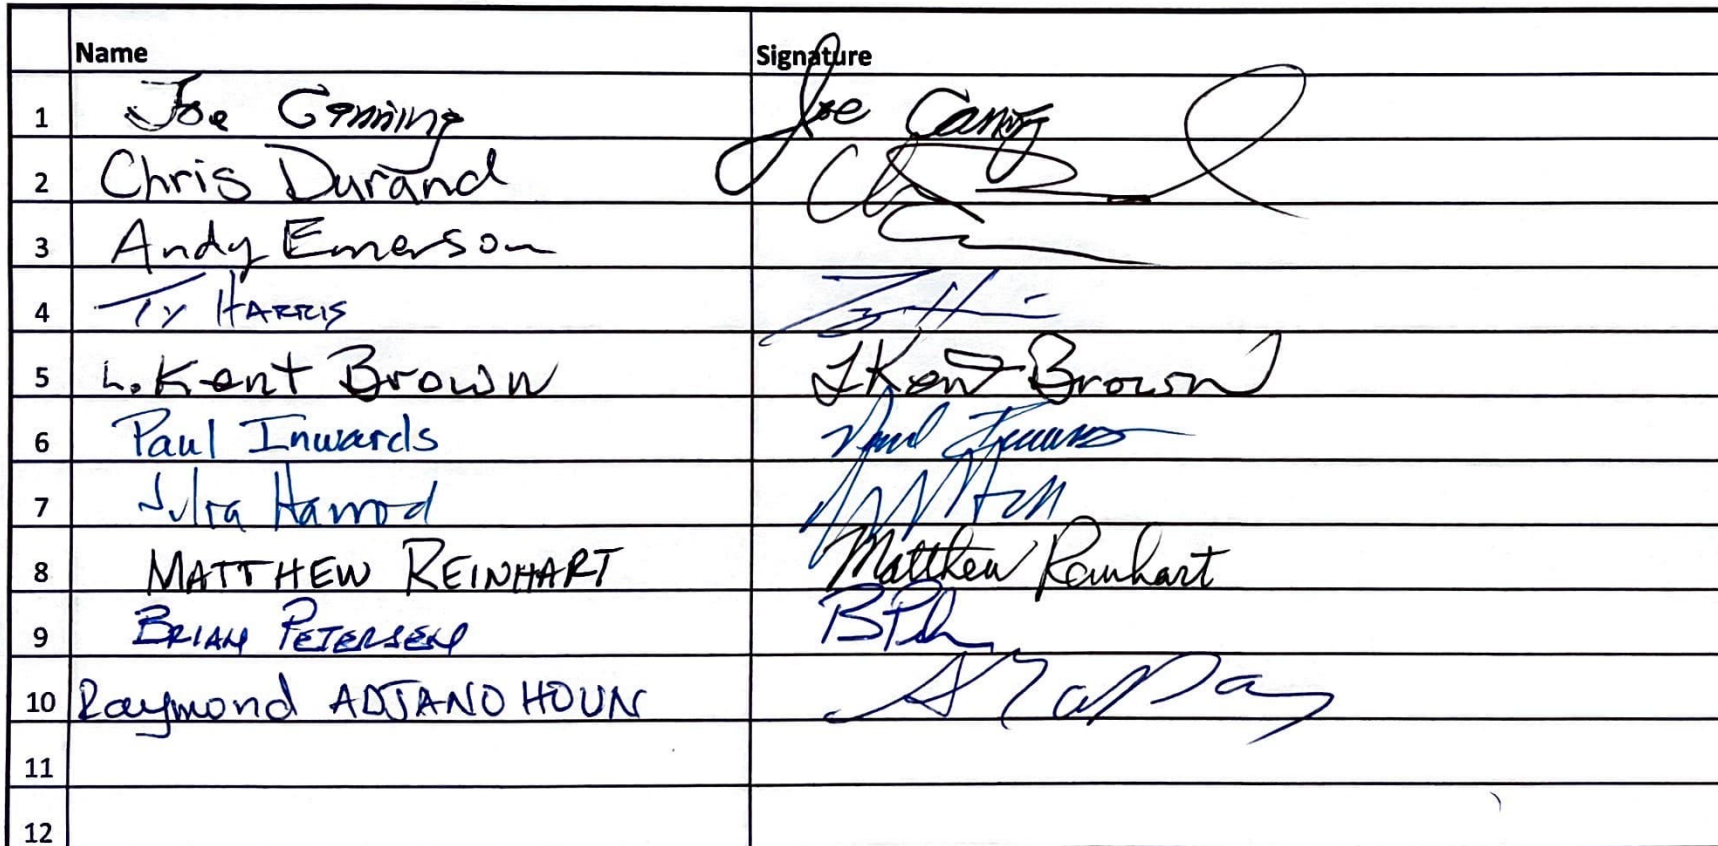 Name Signature
1 Joe Canning Joe Canning
2 Chris Durand
3 Andy Emerson
4 Ty HARRIS
5 L. Kent Brown L Kent Brown
6 Paul Inwards Paul Inwards
7 Julia Harrod
8 MATTHEW REINHART Matthew Reinhart
9 BRIAN PETERSEN
10 Raymond ADJANOHOUN
11
12